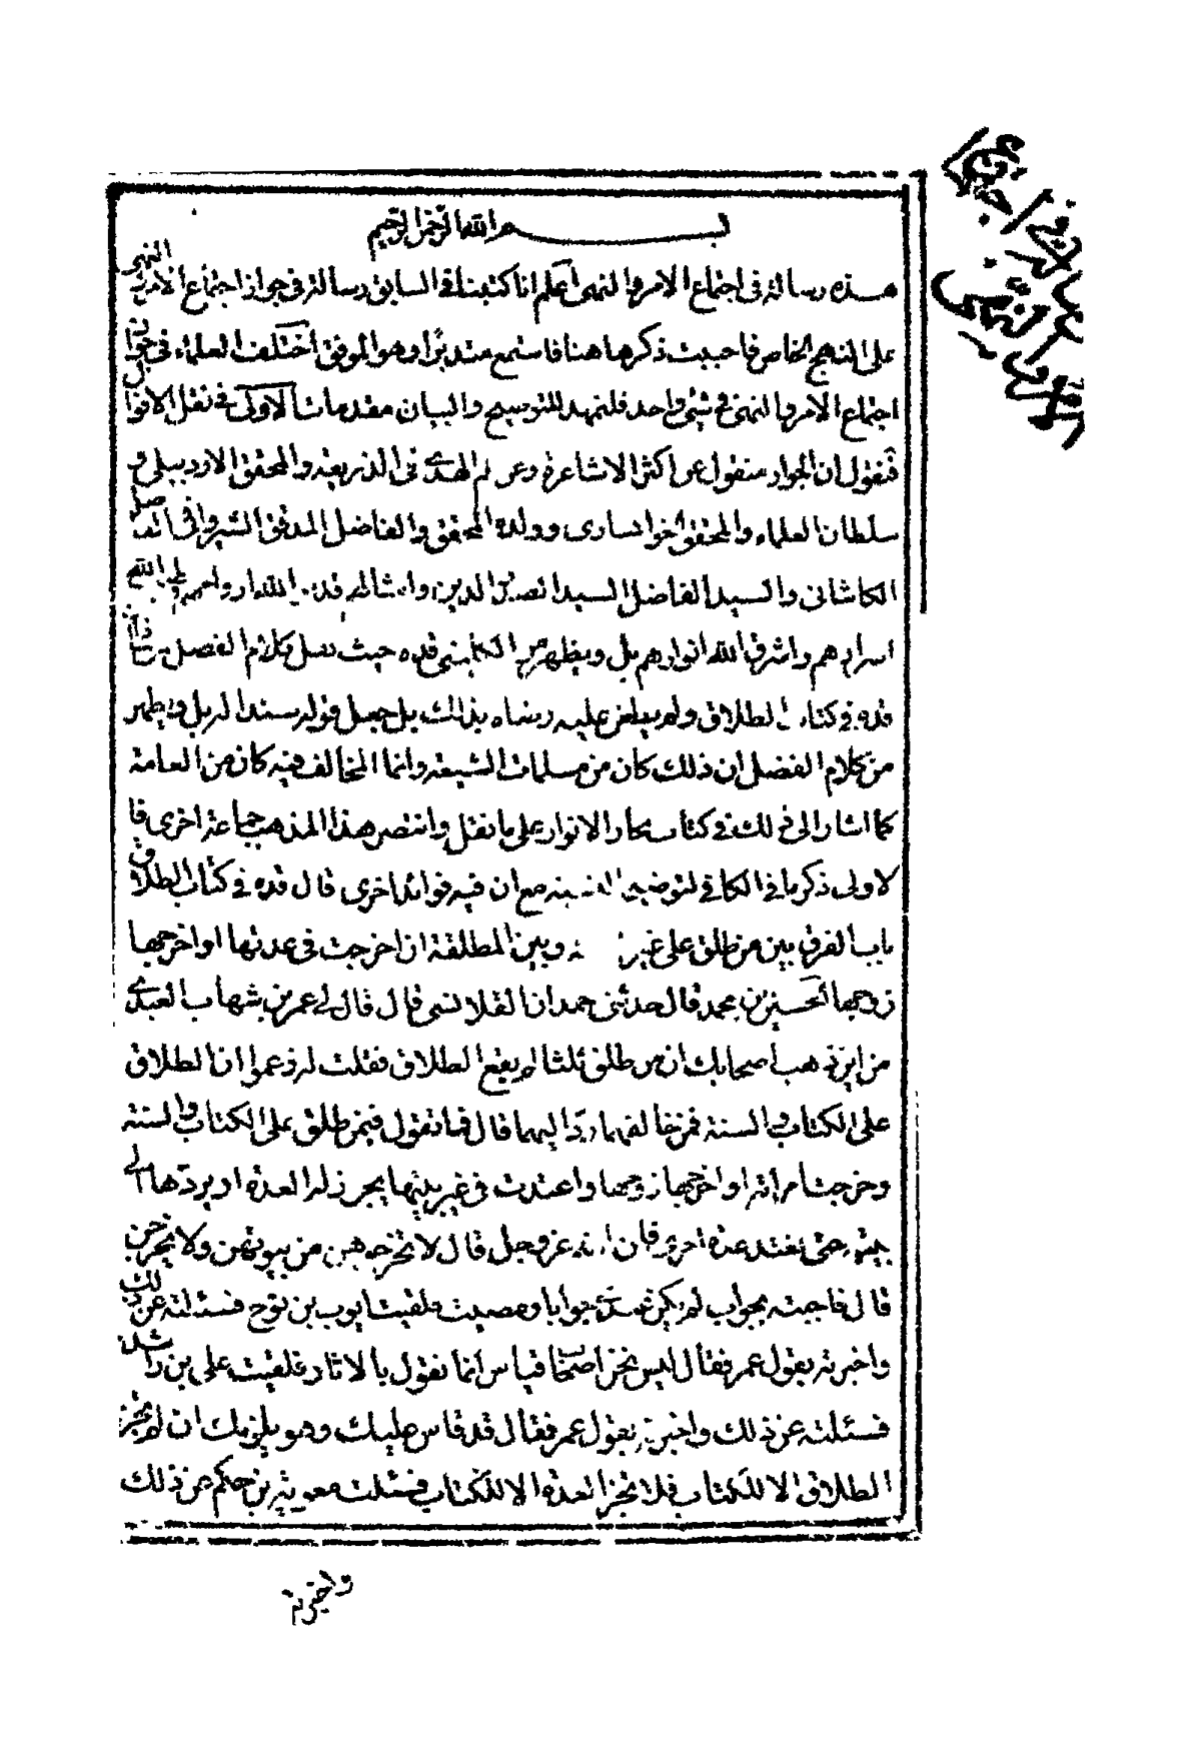 بسم الله الرحمن الرحيم
هذه رسالة فى اجتماع الامر والنهى اعلم انا كتبنا فى السابق رسالة فى جواز اجتماع الامر والنهى
على النهج الخاص فاحببت ذكرها هنا فاستمع متدبرا وهو الموفق اختلف العلماء فى جواز
اجتماع الامر والنهى فى شئ واحد فلنمهد للتوضيح والبيان مقدمات الاولى فى نقل الاقوال
فنقول ان الجواز منقول عن اكثر الاشاعرة وعن علم الهدى فى الذريعة والمحقق الاردبيلى و
سلطان العلماء والمحقق الخوانسارى وولده المحقق والفاضل المدقق الشيروانى
الكاشانى والسيد الفاضل السيد الصدر الدين وامثالهم قدس الله ارواحهم
اسرارهم واشرق الله انوارهم بل ويظهر من الكلينى قده حيث نقل كلام الفضل بن شاذان
قده فى كتاب الطلاق ولم يطعن عليه رضاه بذلك بل جعل قوله سندا له بل ويظهر
من كلام الفضل ان ذلك كان من مسلمات الشيعة وانما المخالف فيه كان من العامة
كما اشار الى ذلك فى كتاب بحار الانوار على ما نقل وانتصر هذا المذهب جماعة اخرى فا
لاولى ذكر ما فى الكافى لتوضيح مع ان فيه فوائد اخرى قال قده فى كتاب الطلاق
باب الفرق بين من طلق على غير وبين المطلقة ان اخرجت فى عدتها او اخرجها
زوجها الحسين بن محمد قال حدثنى حمدان القلانسى قال قال لى عمر بن شهاب العبدى
من اين زهب اصحابك ان من طلق ثلثا لم يقع الطلاق فقلت له زعموا ان الطلاق
على الكتاب والسنة فمن خالفهما رد اليهما قال فما تقول فيمن طلق على الكتاب والسنة
وخرجت امراته او اخرجها زوجها واعتدت فى غير بيتها يجوز له العدة او يردها الى
بيته حتى تعتد عدة اخرى فان الله عز وجل قال لا تخرجوهن من بيوتهن ولا يخرجن
قال فاجبته بجواب لم يكن عندى جوابا ومضيت فلقيت ايوب بن نوح فسئلته عن ذلك
واخبرته بقول عمر فقال ليس نحن اصحاب قياس انما نقول بالاثار فلقيت على بن راشد
فسئلته عن ذلك واخبرته بقول عمر فقال قد قاس عليك وهو يلزمك ان لم يجز
الطلاق الا للكتاب فلا تجز العدة الا للكتاب فسئلت معوية بن حكيم عن ذلك
واخبرته